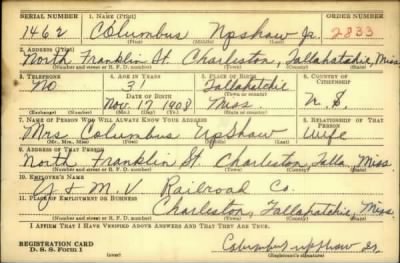 SERIAL NUMBER 1. NAME (Print) ORDER NUMBER
1462 Columbus Upshaw Jr. 2833
(First) (Middle) (Last)
2. ADDRESS (Print)
North Franklin St. Charleston, Tallahatchie, Miss.
(Number and street or R. F. D. number) (Town) (County) (State)
3. TELEPHONE 4. AGE IN YEARS 5. PLACE OF BIRTH 6. COUNTRY OF CITIZENSHIP
NO 31 Tallahatchie
DATE OF BIRTH (Town or county)
Nov. 17 1908 Miss. U. S.
(Exchange) (Number) (Mo.) (Day) (Yr.) (State or country)
7. NAME OF PERSON WHO WILL ALWAYS KNOW YOUR ADDRESS 8. RELATIONSHIP OF THAT PERSON
Mrs Columbus Upshaw Wife
(Mr., Mrs., Miss) (First) (Middle) (Last)
9. ADDRESS OF THAT PERSON
North Franklin St. Charleston, Talla. Miss.
(Number and street or R. F. D. number) (Town) (County) (State)
10. EMPLOYER'S NAME
Y & M. V. Railroad Co.
11. PLACE OF EMPLOYMENT OR BUSINESS
Charleston, Tallahatchie, Miss.
(Number and street or R. F. D. number) (Town) (County) (State)
I AFFIRM THAT I HAVE VERIFIED ABOVE ANSWERS AND THAT THEY ARE TRUE.
REGISTRATION CARD Columbus upshaw Jr.
D. S. S. Form 1 (Registrant's signature)